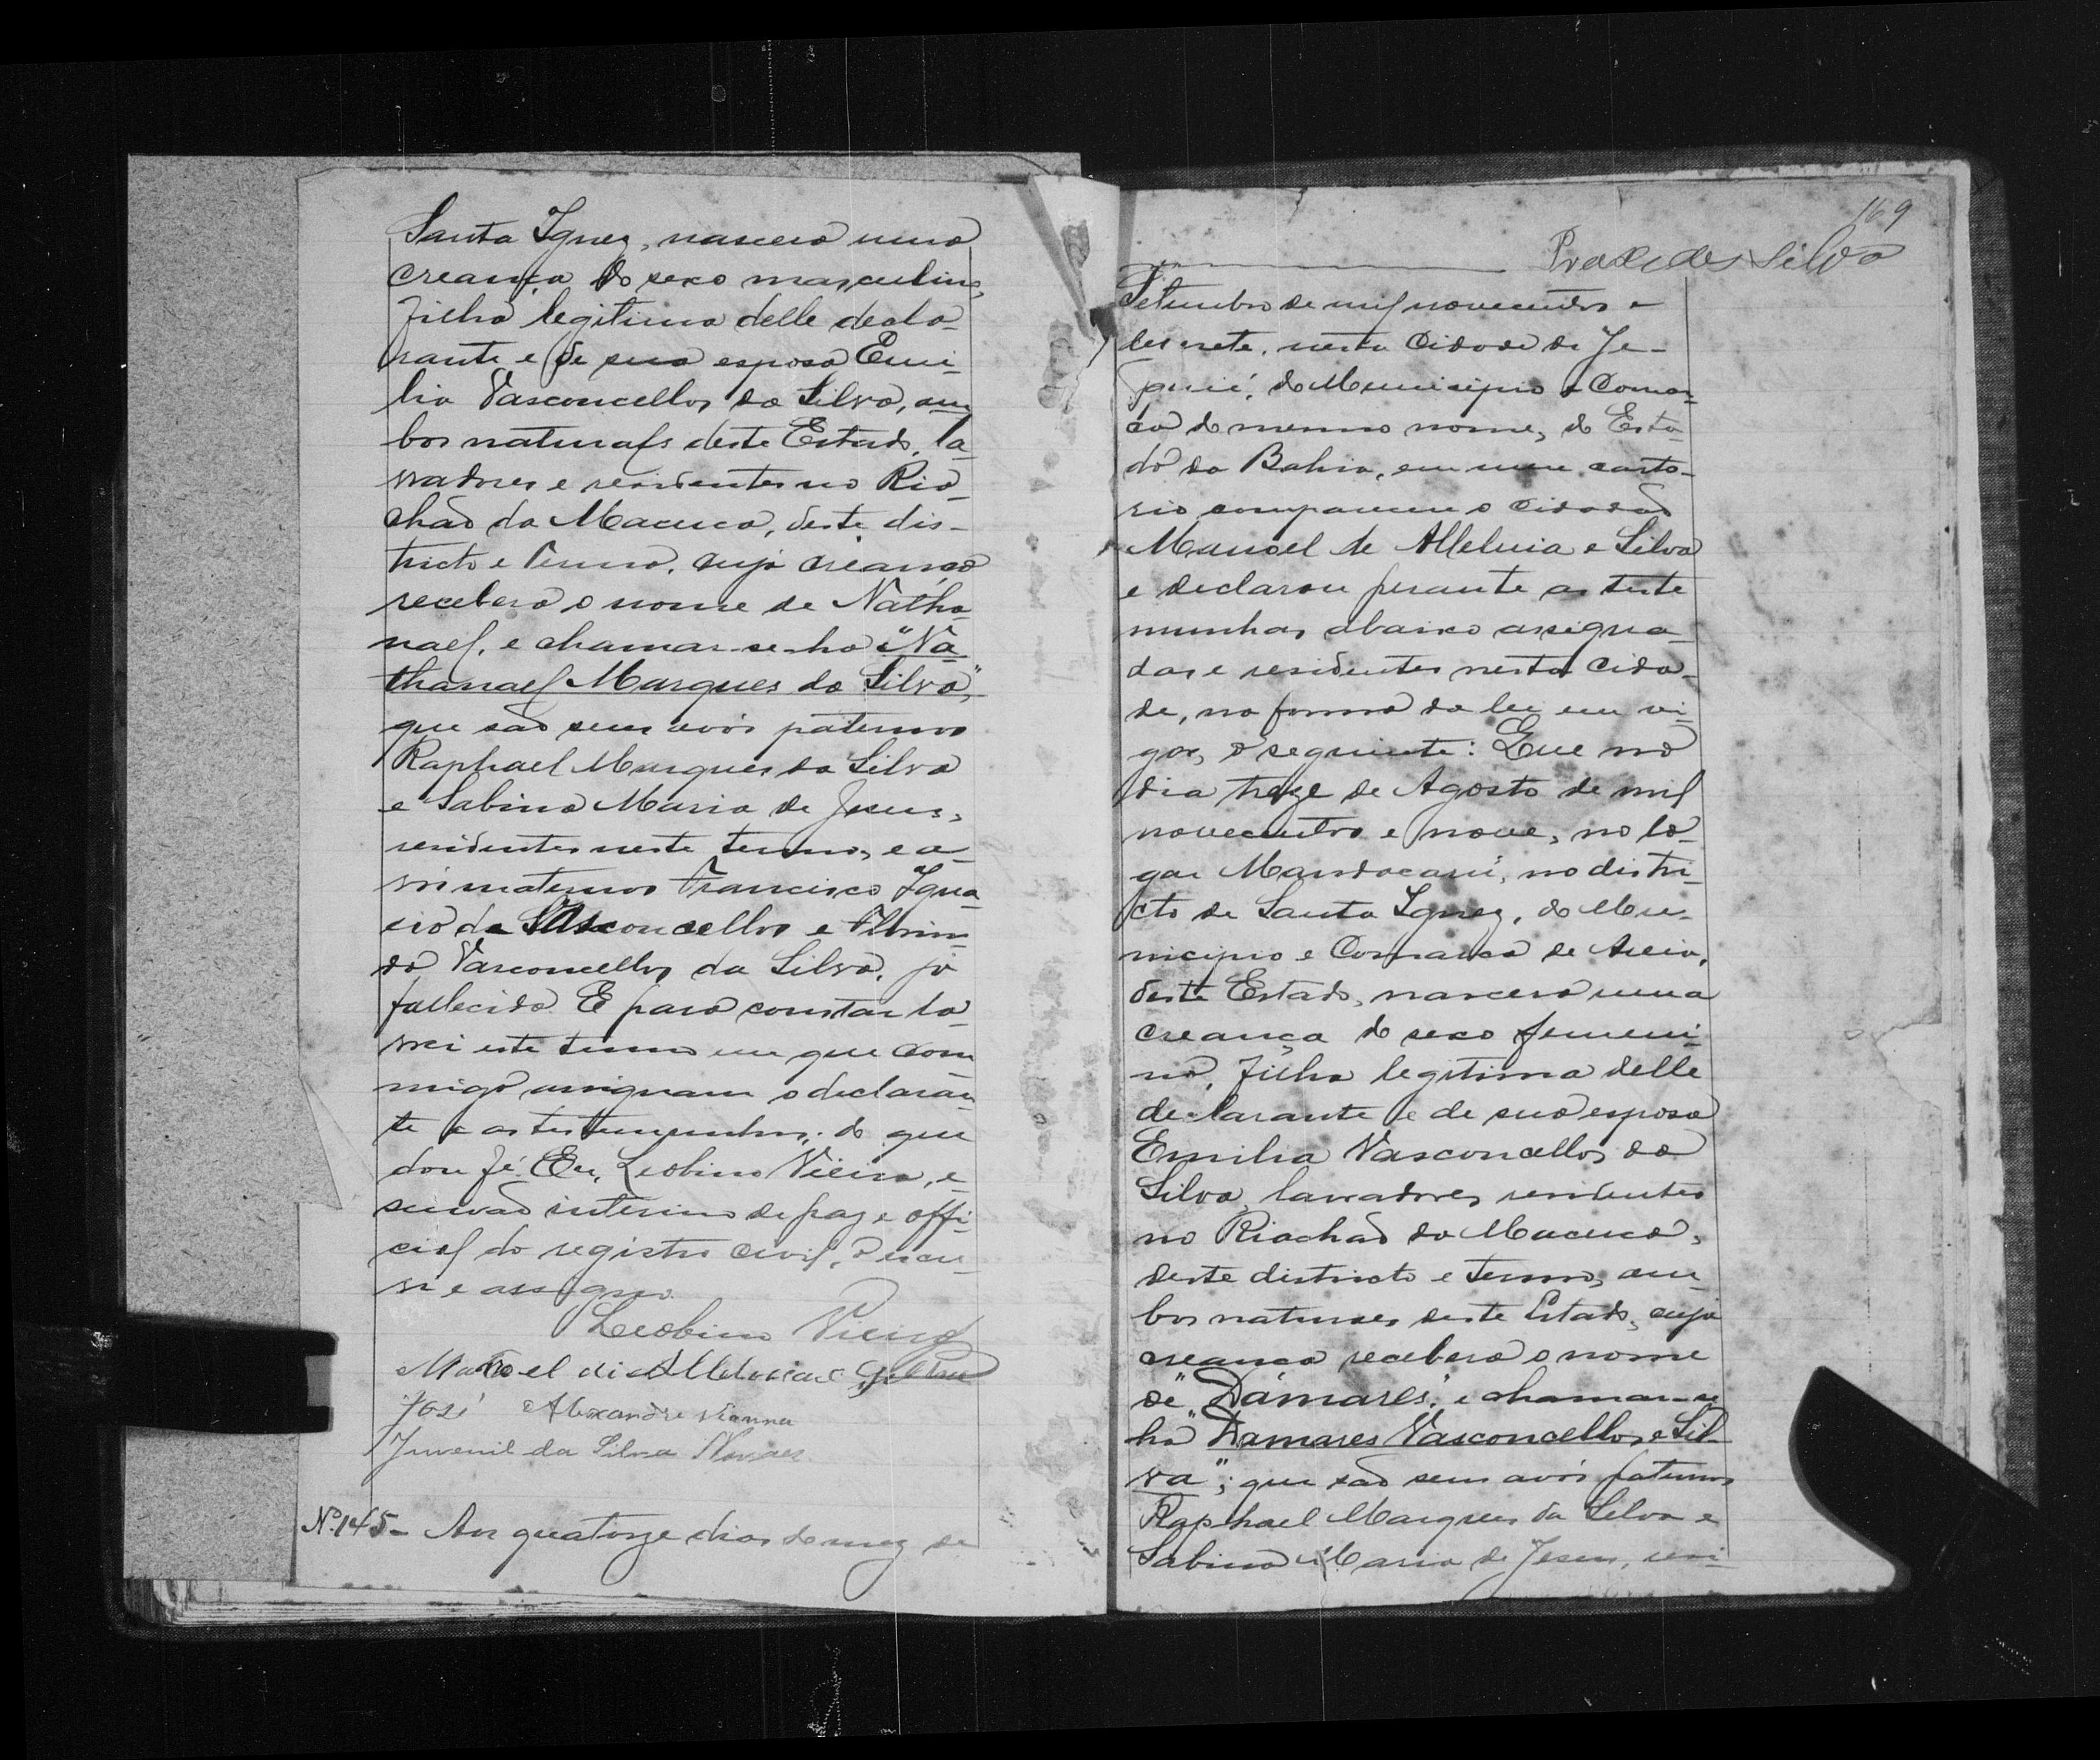 Santa Ignez, nascera uma
creança do sexo masculino,
filho legitimo delle decla-
rante e de sua esposa Emi-
lia Vasconcellos da Silva, am-
bos naturaes deste Estado, la-
vradores e residentes no Ria-
chão da Macuca, deste dis-
tricto e termo, cuja creança
recebera o nome de Natha-
nael, e chamar-se-ha "Na-
thanael Marques da Silva",
que são seus avós paternos
Raphael Marques da Silva
e Sabina Maria de Jesus,
residentes neste termo, e a-
vós maternos Francisco Igna-
cio de Vasconcellos e
Vasconcellos da Silva, já
fallecida. E para constar la-
vrei este termo em que com-
migo assignam o declaran-
te e as testemunhas; do que
dou fé. Eu, Leobino Vieira, e-
scrivão interino de paz e offi-
cial do registro civil, o escre-
vi e assigno.
Leobino Vieira
Manoel de Alleluia e Silva
José Alexandre Vianna
Juvenil da Silva Novaes
Nº 145 - Aos quatorze dias do mez de
169
Silva
Setembro de mil novecentos e
desesete, nesta Cidade de Je-
quié, do Municipio e Comar-
ca do mesmo nome, do Esta-
do da Bahia, em meu carto-
rio compareceu o cidadão
Manoel de Alleluia e Silva
e declarou perante as teste-
munhas abaixo assigna-
das e residentes nesta cida-
de, na forma da lei em vi-
gor, o seguinte: Que no
dia treze de Agosto de mil
novecentos e nove, no lo-
gar Mandacarú, no distri-
cto de Santa Ignez, do Mu-
nicipio e Comarca de Areia,
deste Estado, nascera uma
creança do sexo femeni-
no, filha legitima delle
declarante e de sua esposa
Emilia Vasconcellos da
Silva, lavradores, residentes
no Riachão da Macuca,
deste districto e termo, am-
bos naturaes deste Estado, cuja
creança recebera o nome
de "Dámares", e chamar-se-
ha "Damares Vasconcellos e Sil-
va"; que são seus avós paternos
Raphael Marques da Silva e
Sabina Maria de Jesus, resi-